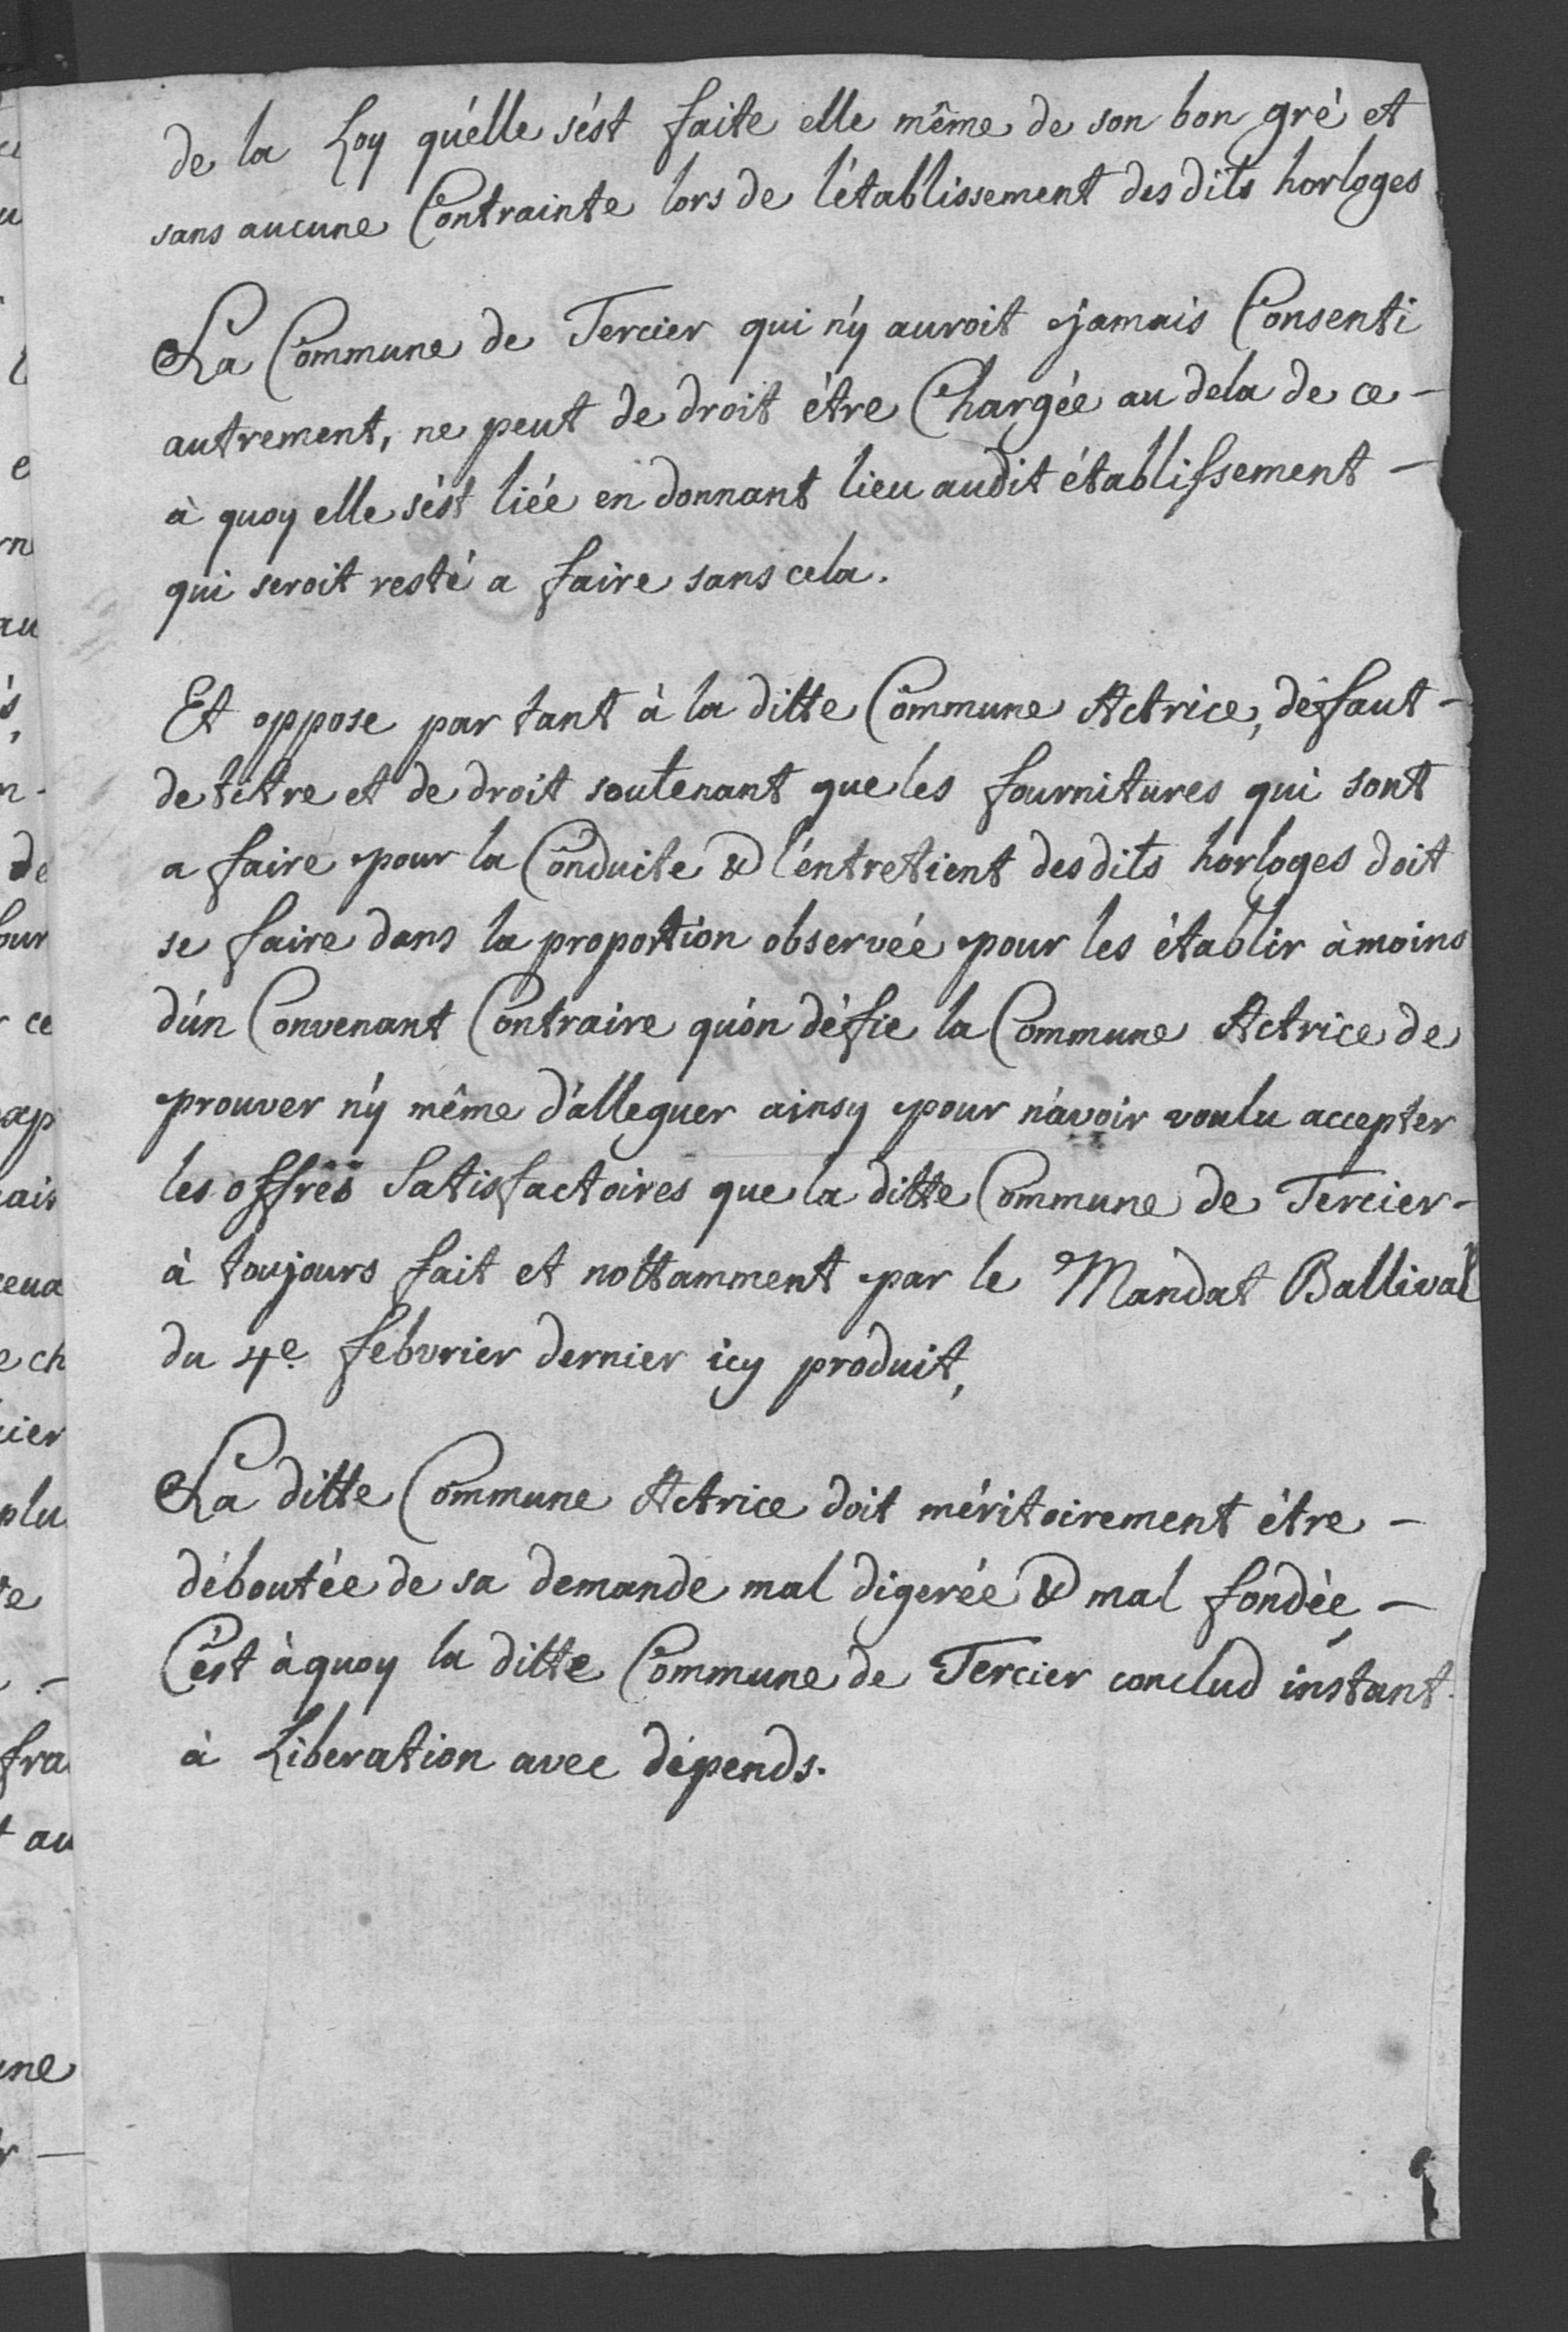 de la Loy qu'elle s'est faite elle même de son bon gré et
sans aucune Contrainte lors de l'établissement des dits horloges
La Commune de Tercier qui n'y auroit jamais Consenti
autrement, ne peut de droit être Chargée au dela de ce -
à quoy elle s'est liée en donnant lieu audit établissement -
qui seroit resté a faire sans cela.
Et oppose par tant à la ditte Commune Actrice, déffaut -
de titre et de droit soutenant que les fournitures qui sont
a faire pour la Conduite & l'entretient des dits horloges doit
se faire dans la proportion observée pour les établir à moins
d'un Convenant Contraire qu'on défie la Commune Actrice de
prouver n'y même d'alleguer ainsy pour n'avoir voulu accepter
les offres Satisfactoires que la ditte Commune de Tercier -
à toujours fait et nottamment par le Mandat Ballival
du 4e. febvrier dernier icy produit,
La ditte Commune Actrice doit méritoirement être -
déboutée de sa demande mal digerée & mal fondée, -
C'est à quoy la ditte Commune de Tercier conclud instant
à Liberation avec dépends.